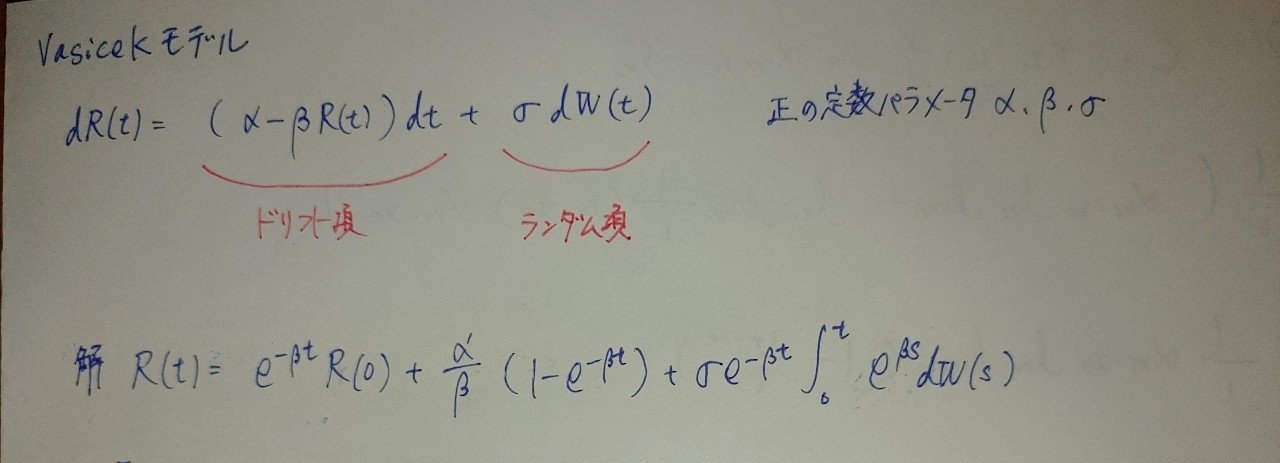 Vasicekモデル
dR(t) = (α-βR(t))dt + σdW(t) 正の定数パラメータ α、β、σ
ドリフト項 ランダム項
解 R(t) = e^{-βt}R(0) + \frac{α}{β}(1-e^{-βt}) + σe^{-βt}∫_0^t e^{βs}dW(s)